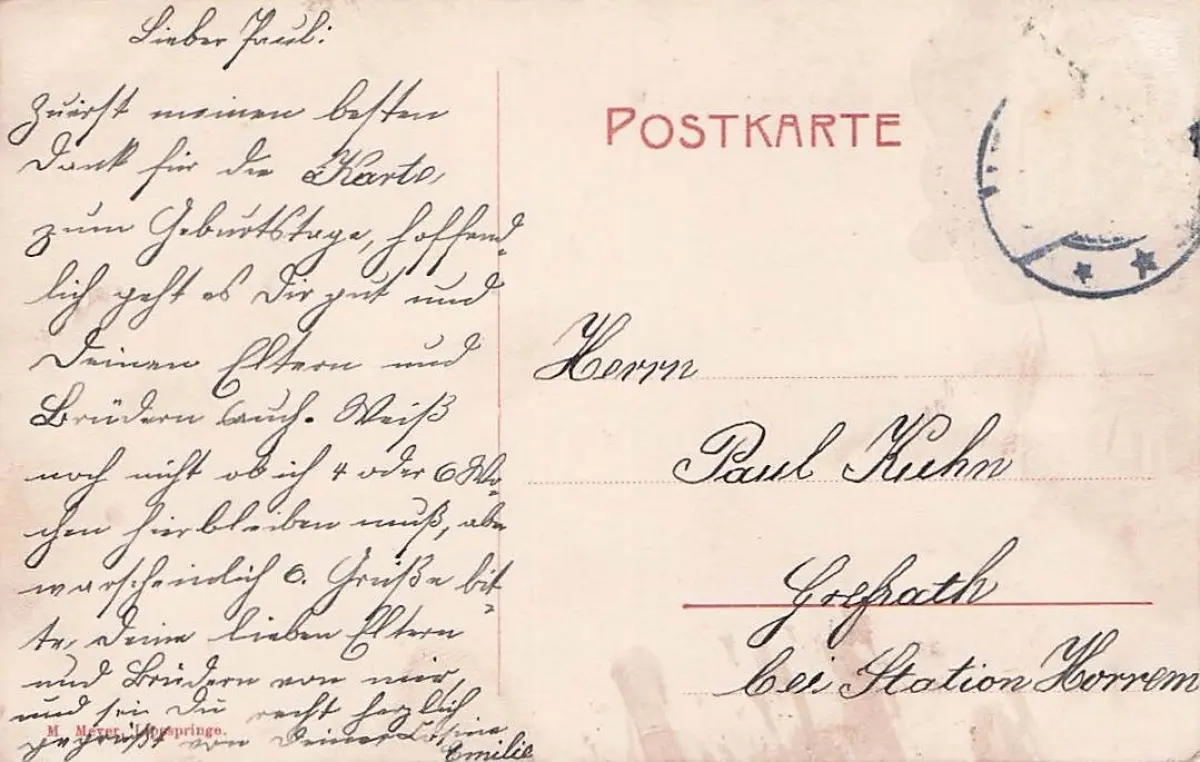 Lieber Paul!
Zuerst meinen besten
Dank für die Karte,
zum Geburtstage, hoffend-
lich geht es Dir gut und
Deinen Eltern und
Brüdern auch. Weiß
noch nicht ob ich 4 oder 6 Wo-
chen hierbleiben muß, aber
warscheinlich 6. Grüße bit-
te, Deine lieben Eltern
und Brüdern von mir,
und sei Du recht herzlich
gegrüßt von Deiner Cosine
Emilie
M. Meyer, Lippspringe.
POSTKARTE
Herrn
Paul Kuhn
Grefrath
bei Station Horrem